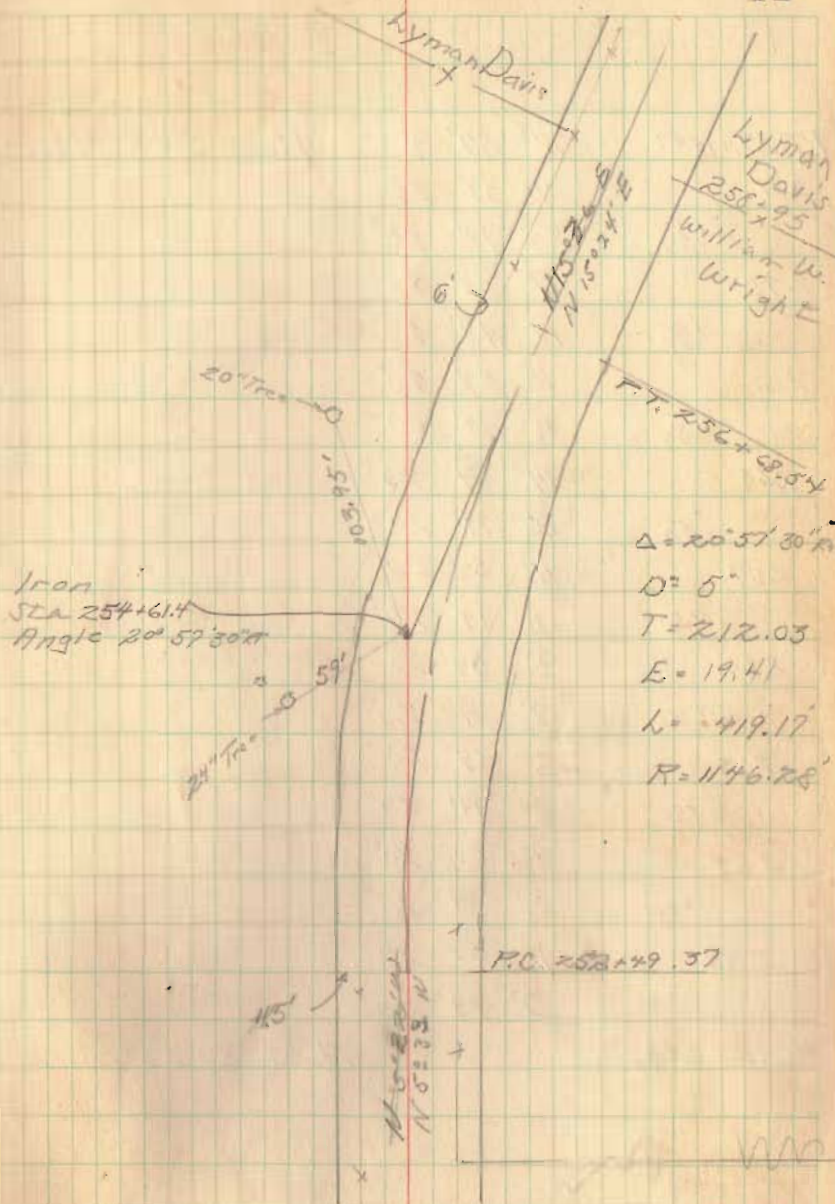 Lyman Davis
Lyman
Davis
256+95
William W.
Wright
N 15°24' E
6'
20" Tree
103.95'
P.T. 256+68.54
Δ = 20°57'30" Rt
D = 5°
T = 212.03
E = 19.41
L = 419.17'
R = 1146.28'
Iron
Sta 254+61.4
Angle 20° 57'30" Rt
59'
24" Tree
P.C. 252+49.37
45'
N 5°33' W